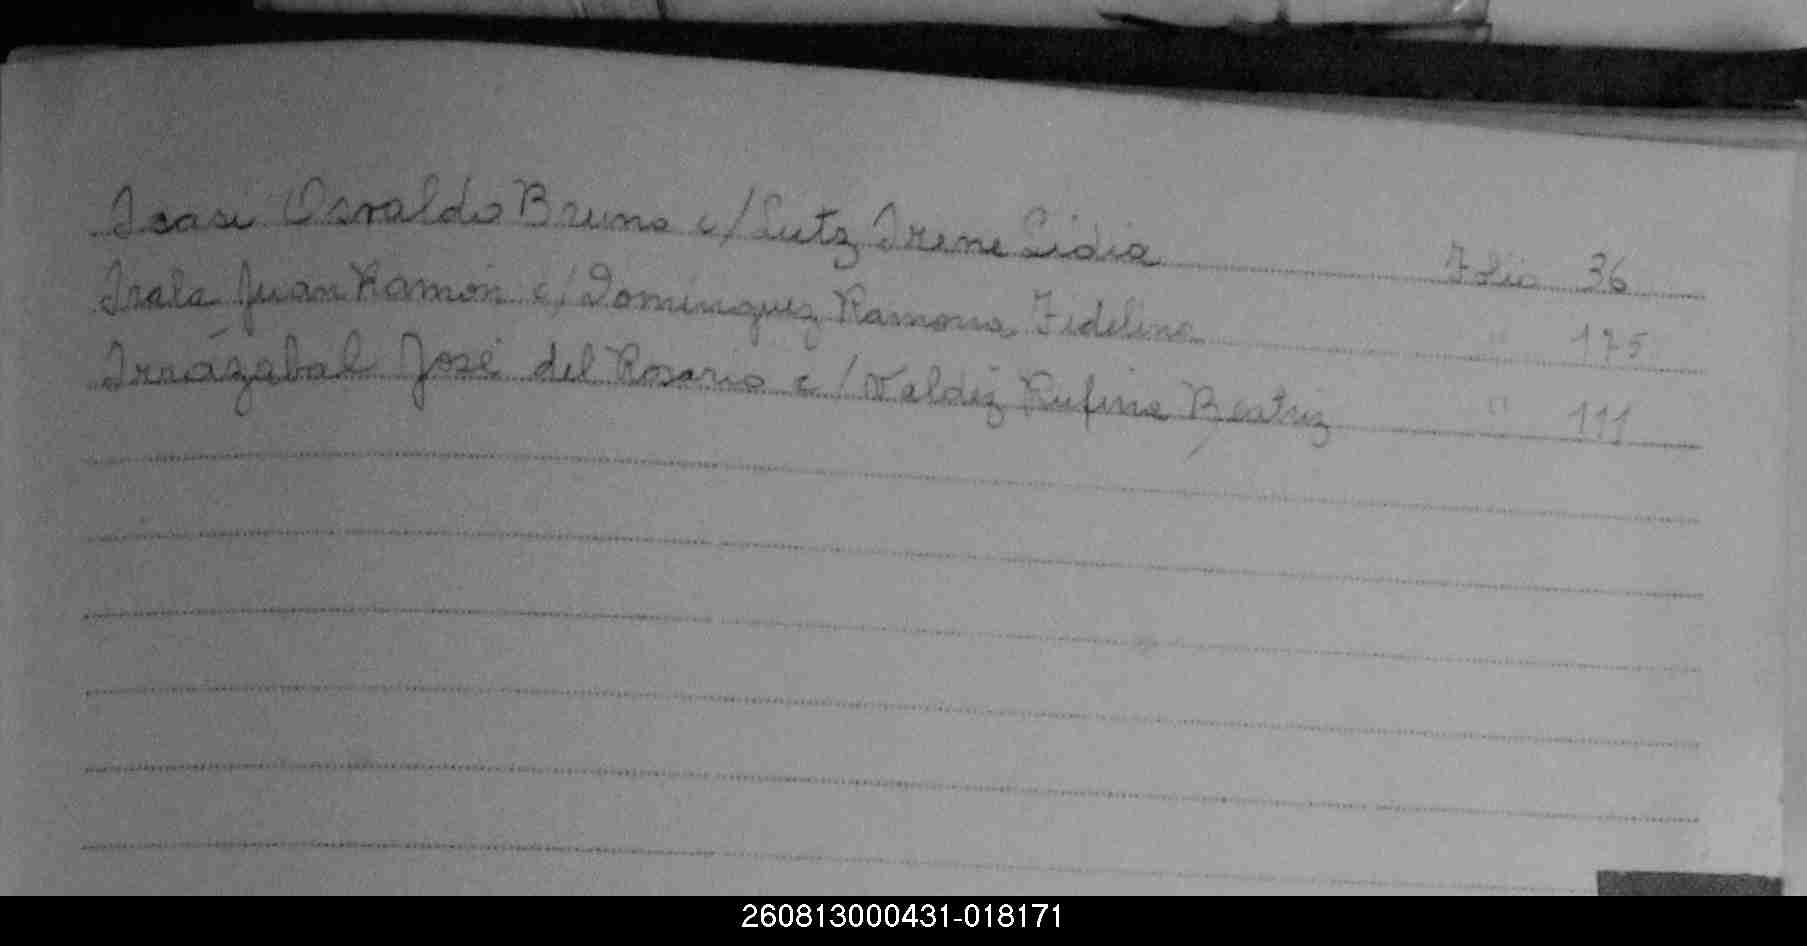 Icasi Osvaldo Bruno c/ Lutz Irene Lidia Folio 36
Irala Juan Ramón c/ Dominguez Ramona Fidelina " 175
Irrázabal José del Rosario c/ Valdéz Rufina Beatriz " 111
260813000431-018171